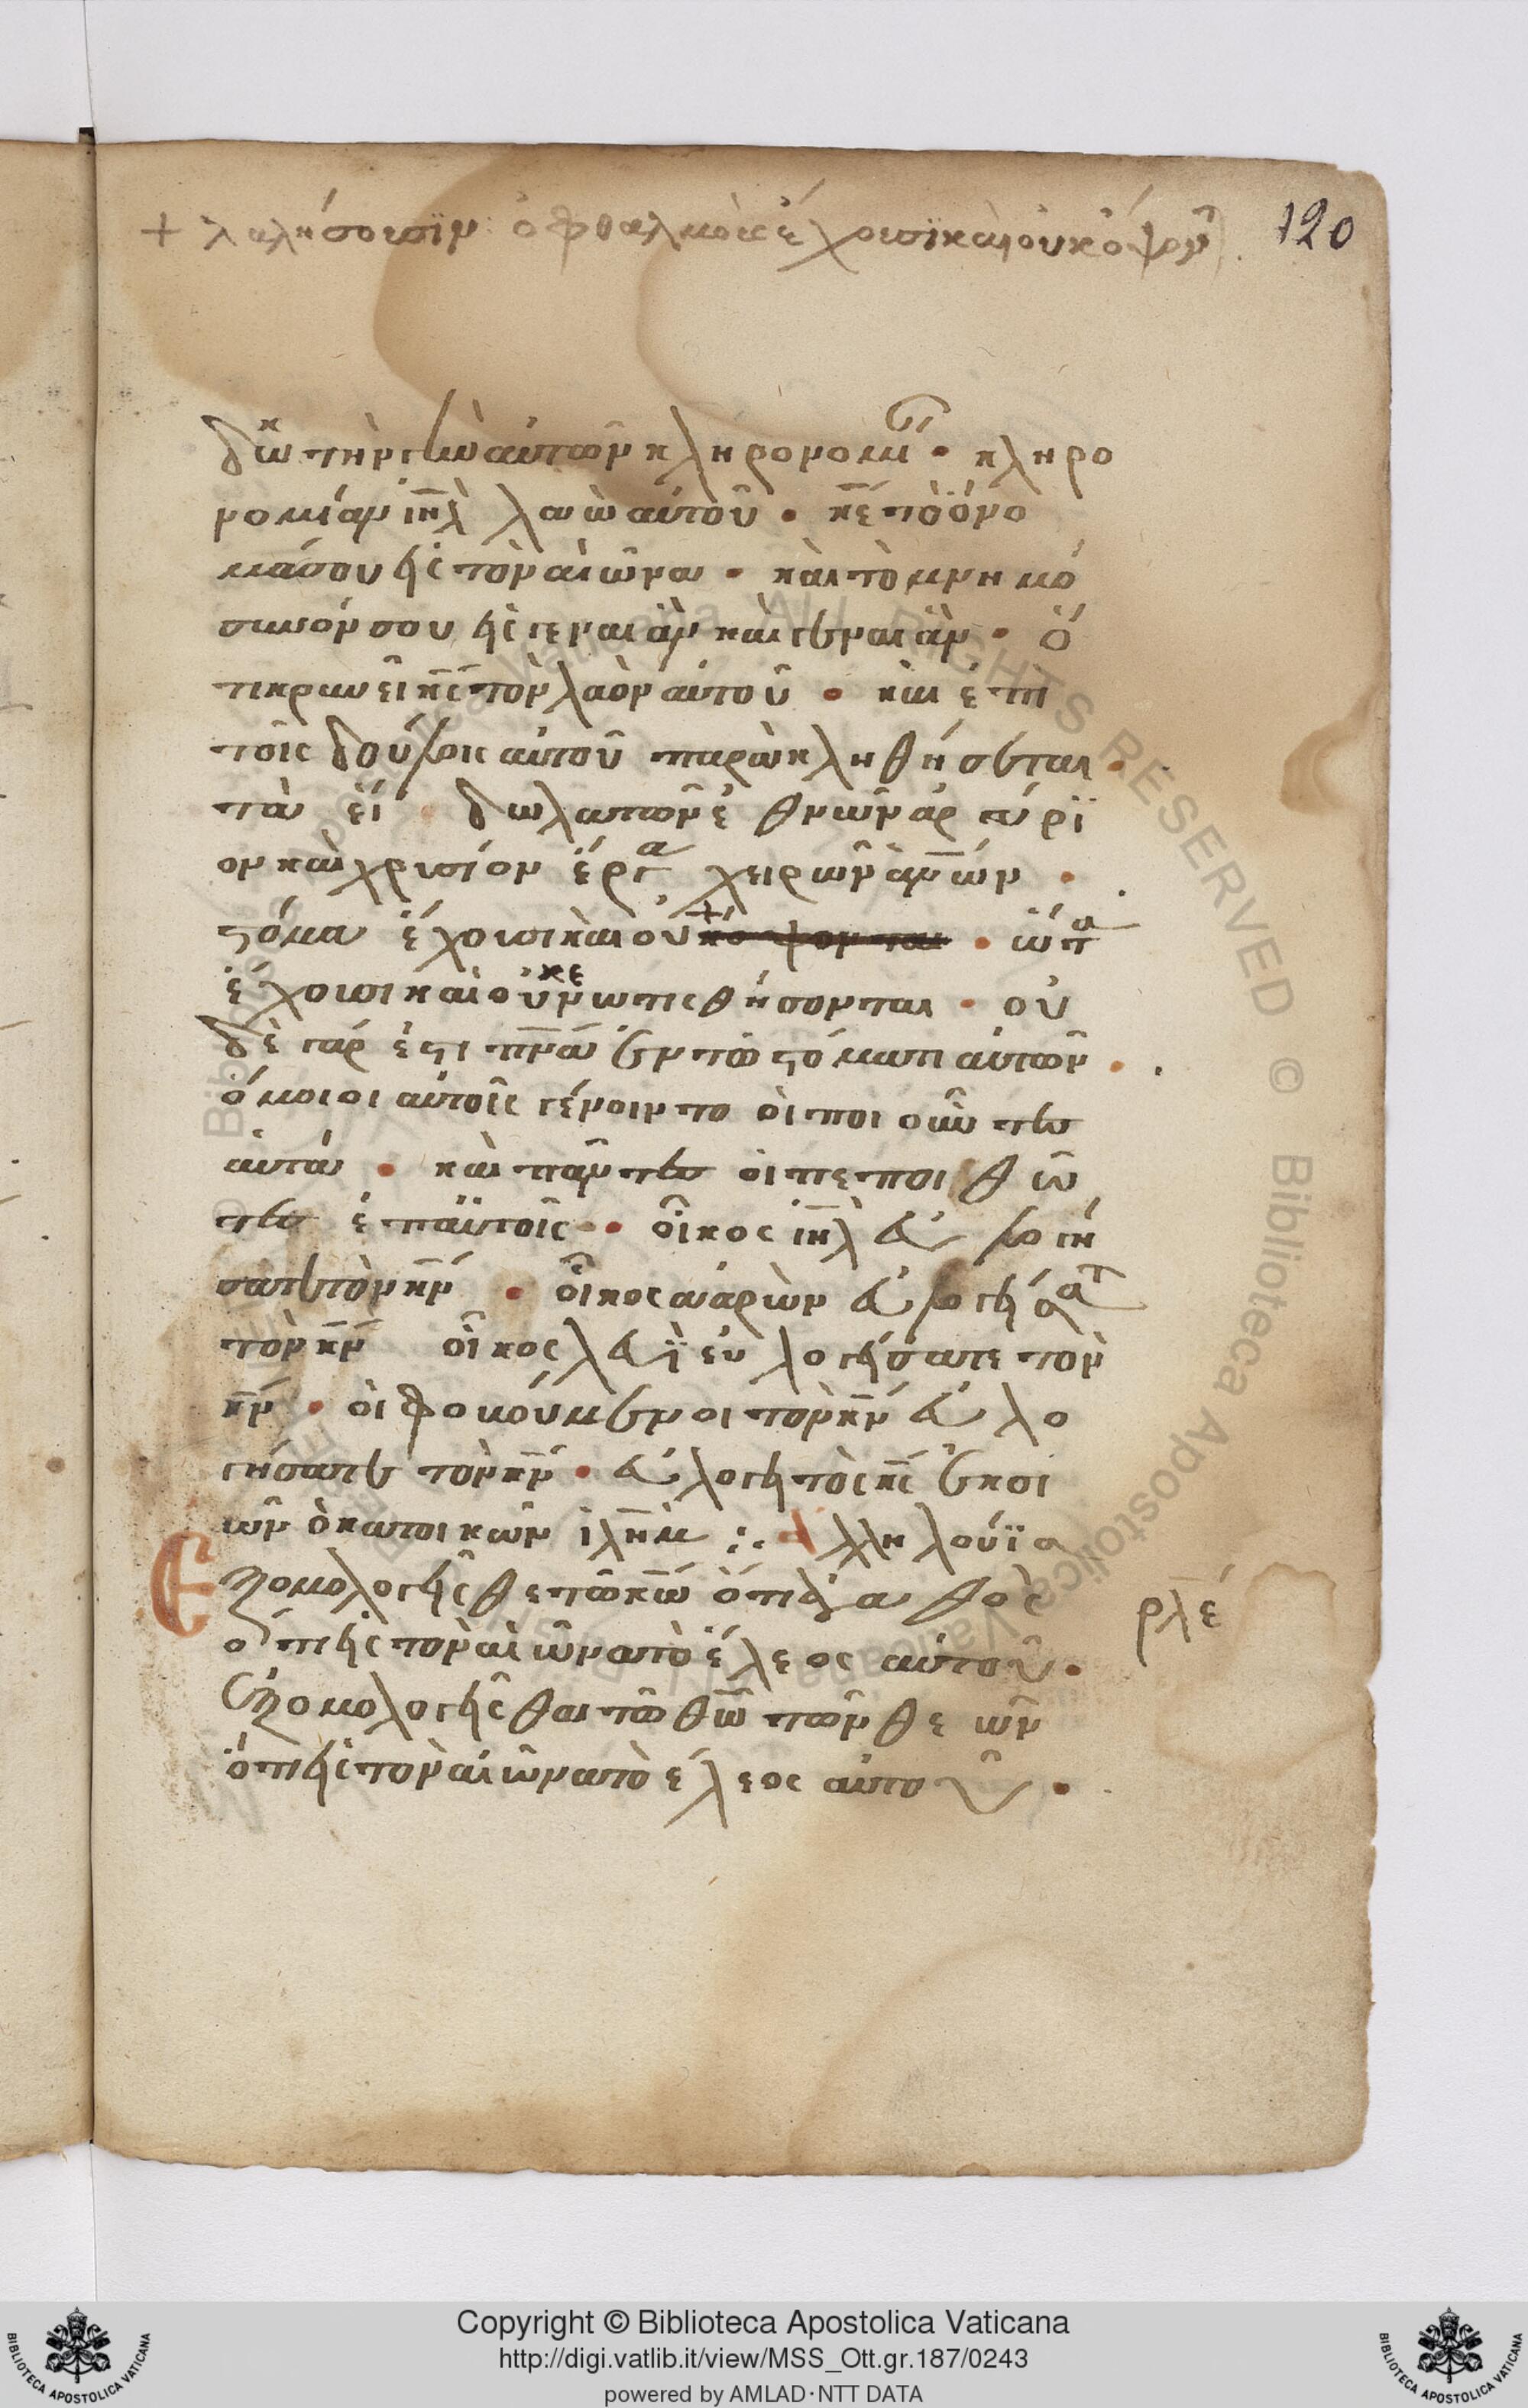 + λαλήσουσϊν· ὀφθαλμοὺς ἔχουσϊ καὶ οὐκ ὄψοντ(αι).
120
δῶκ τὴν γῆν αὐτῶν κληρονομί(αν) · κληρο
νομίαν ιηλ λαῶ αὐτοῦ · κε τὸ ὄνο
μά σου εἰς τὸν αἰῶνα · καὶ τὸ μνημό
συνόν σου εἰς γενεὰν καὶ γενεὰν · ὅ
τι κρινεῖ κς τὸν λαὸν αὐτοῦ · καὶ ἐπὶ
τοῖς δούλοις αὐτοῦ παρακληθήσεται ·
τὰ εἴ δωλα τῶν ἐθνῶν ἀργύρϊ
ον καὶ χρυσίον ἔργα χειρῶν ἀνων ·
στόμα ἔχουσι καὶ οὐ + κ όψονται · ὦτα
ἔχουσι καὶ οὐκ ἐνωτισθήσονται · οὐ
δὲ γάρ ἐστι πνα ἐν τῶ στόματι αὐτῶν ·
ὅμοιοι αὐτοῖς γένοιντο οἱ ποιοῦντες
αὐτά · καὶ πάντες οἱ πεποιθῶ
τες ἐπ αὐτοῖς · οἶκος ιηλ εὐλογή
σατε τὸν κν · οἶκος ααρὼν εὐλογήσατ
τὸν κν οἶκος λευῒ εὐλογήσατε τὸν
κν · οἱ φοβούμενοι τὸν κν εὐλο
γήσατε τὸν κν · εὐλογητὸς κς ἐκ σι
ὼν ὁ κατοικῶν ιλημ :· Ἀλληλούϊα
Ἐξομολογεῖσθε τῶ κω ὅτι ἀγαθὸς
ὅτι εἰς τὸν αἰῶνα τὸ ἔλεος αὐτοῦ ·
ρλε
ἐξομολογεῖσθαι τῶ θω τῶν θεῶν
ὅτι εἰς τὸν αἰῶνα τὸ ἔλεος αὐτοῦ ·
Copyright © Biblioteca Apostolica Vaticana
http://digi.vatlib.it/view/MSS_Ott.gr.187/0243
powered by AMLAD·NTT DATA